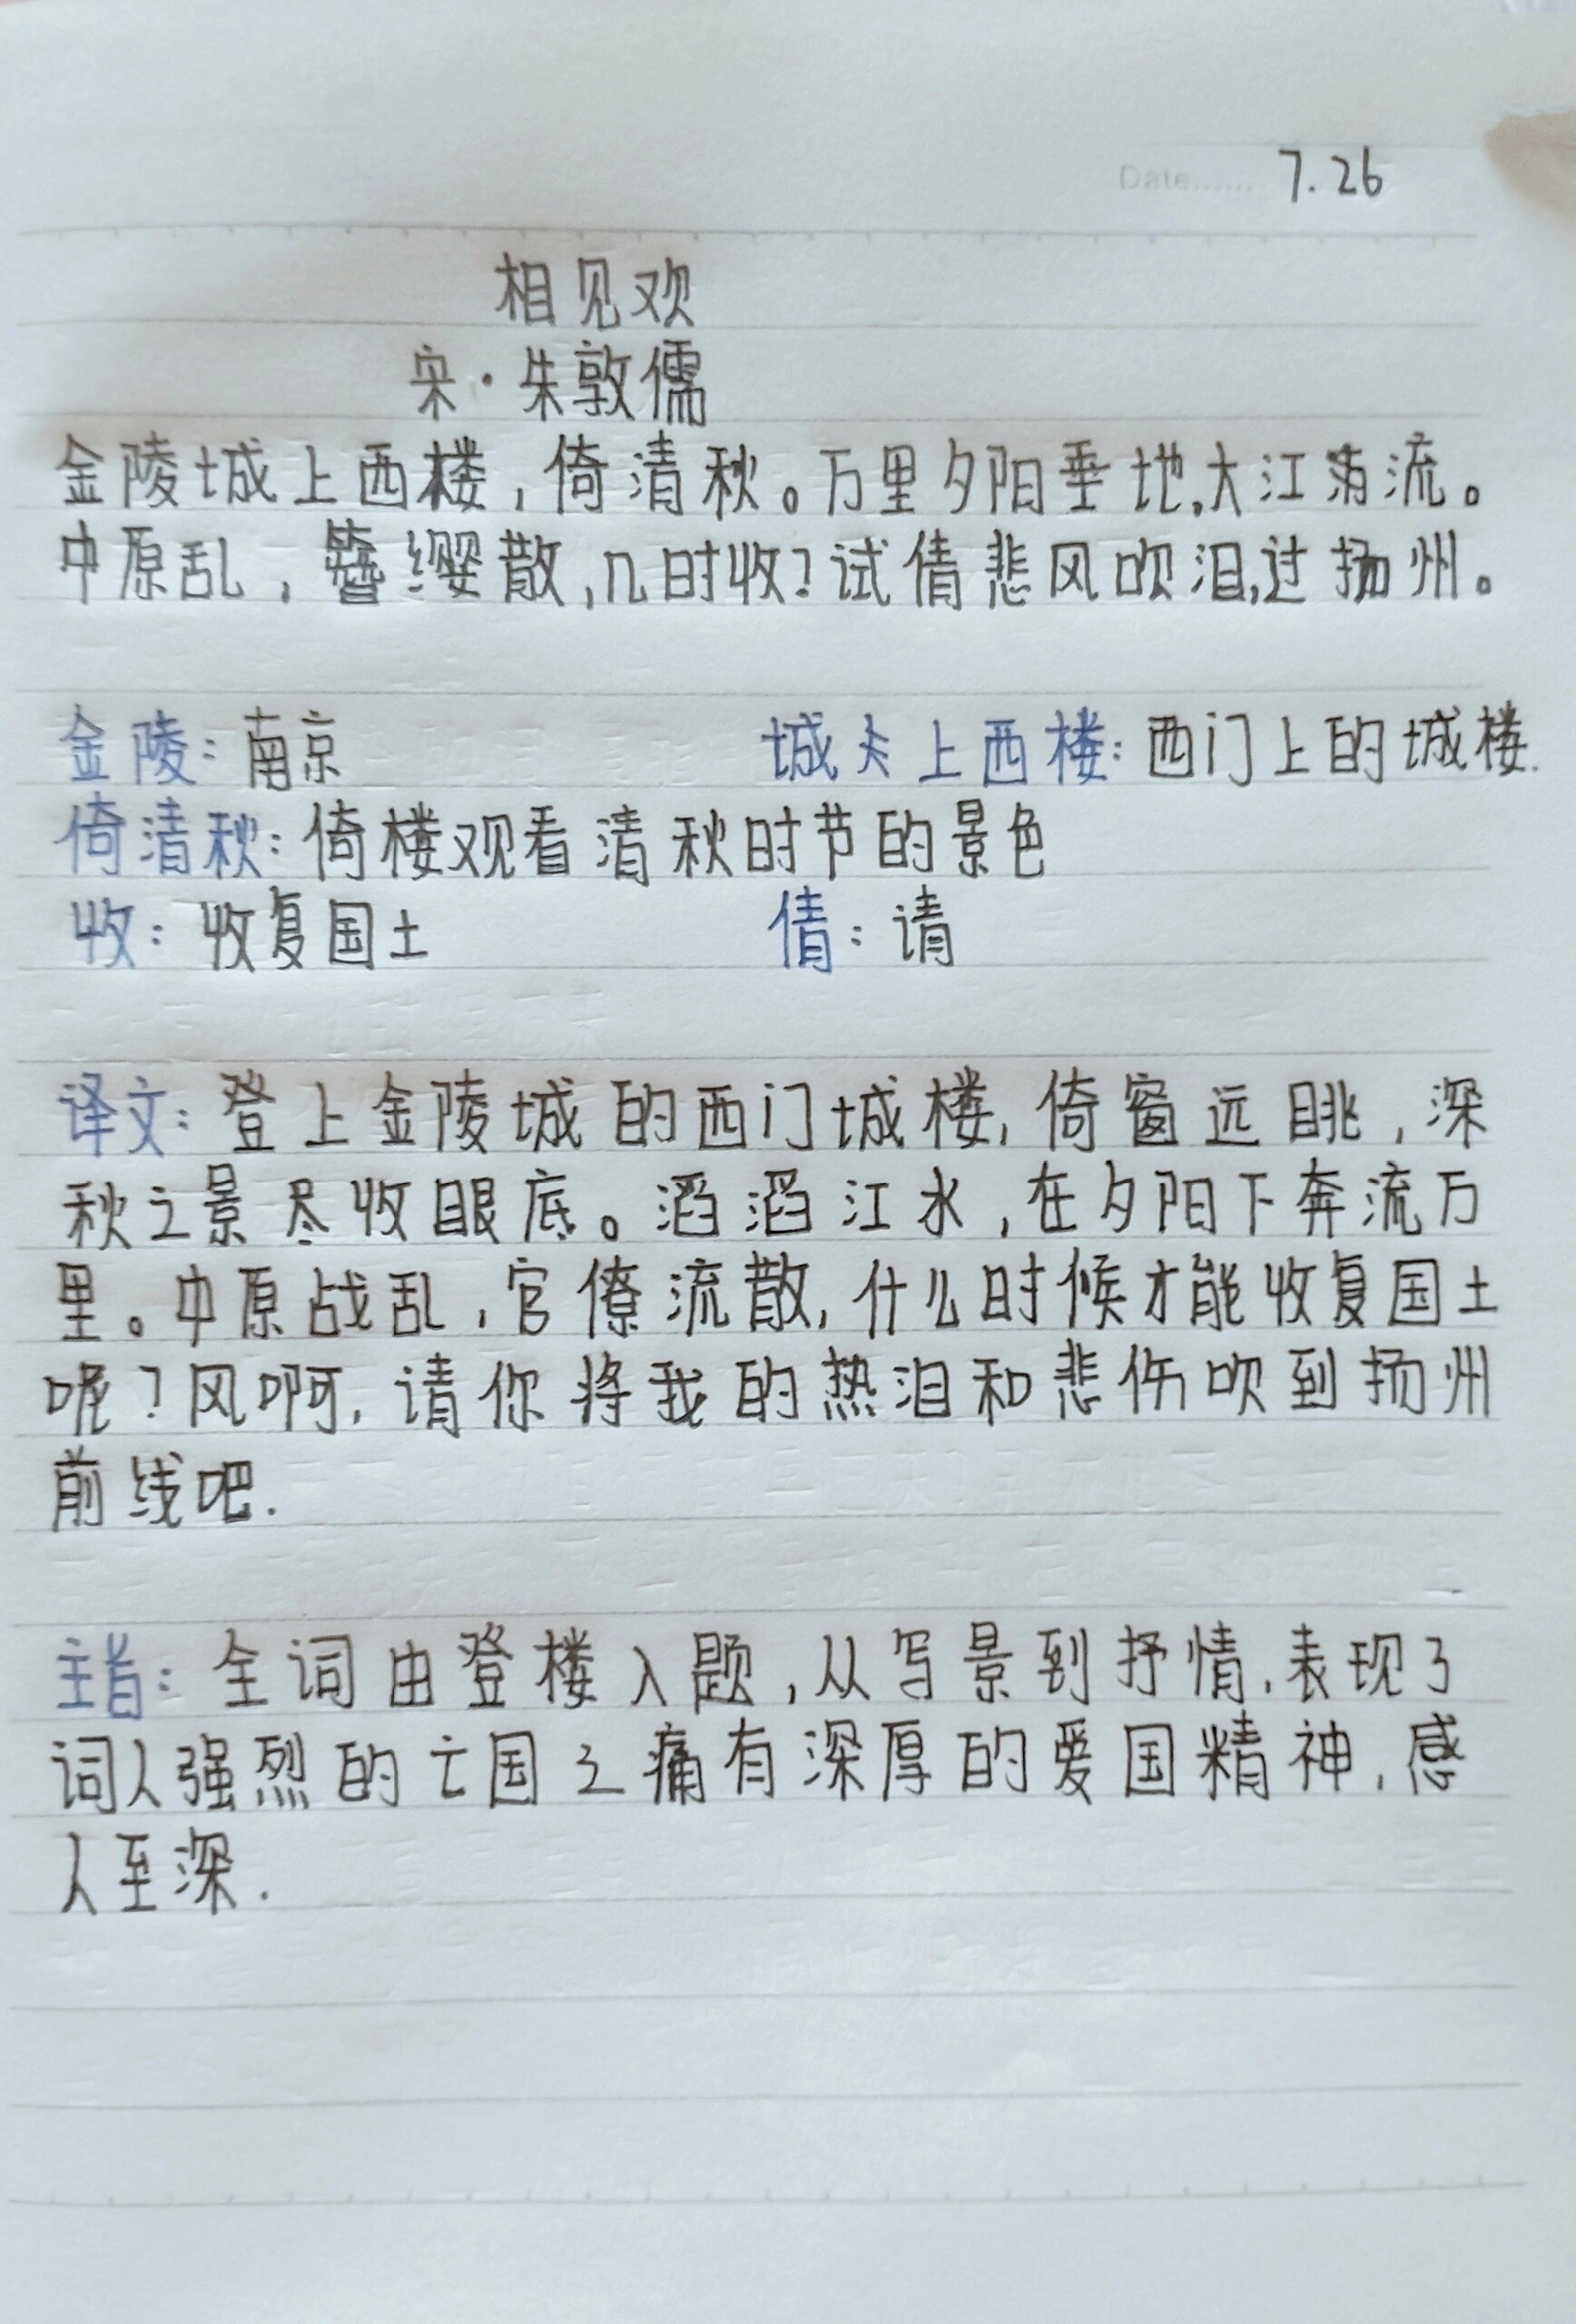 Date...... 7.26
相见欢
宋·朱敦儒
金陵城上西楼,倚清秋。万里夕阳垂地,大江流。
中原乱,簪缨散,几时收?试倩悲风吹泪,过扬州。
金陵:南京 城上西楼:西门上的城楼.
倚清秋:倚楼观看清秋时节的景色
收:收复国土 倩:请
译文:登上金陵城的西门城楼,倚窗远眺,深
秋之景尽收眼底。滔滔江水,在夕阳下奔流万
里。中原战乱,官僚流散,什么时候才能收复国土
呢?风啊,请你将我的热泪和悲伤吹到扬州
前线吧.
主旨:全词由登楼入题,从写景到抒情,表现了
词人强烈的亡国之痛有深厚的爱国精神,感
人至深.